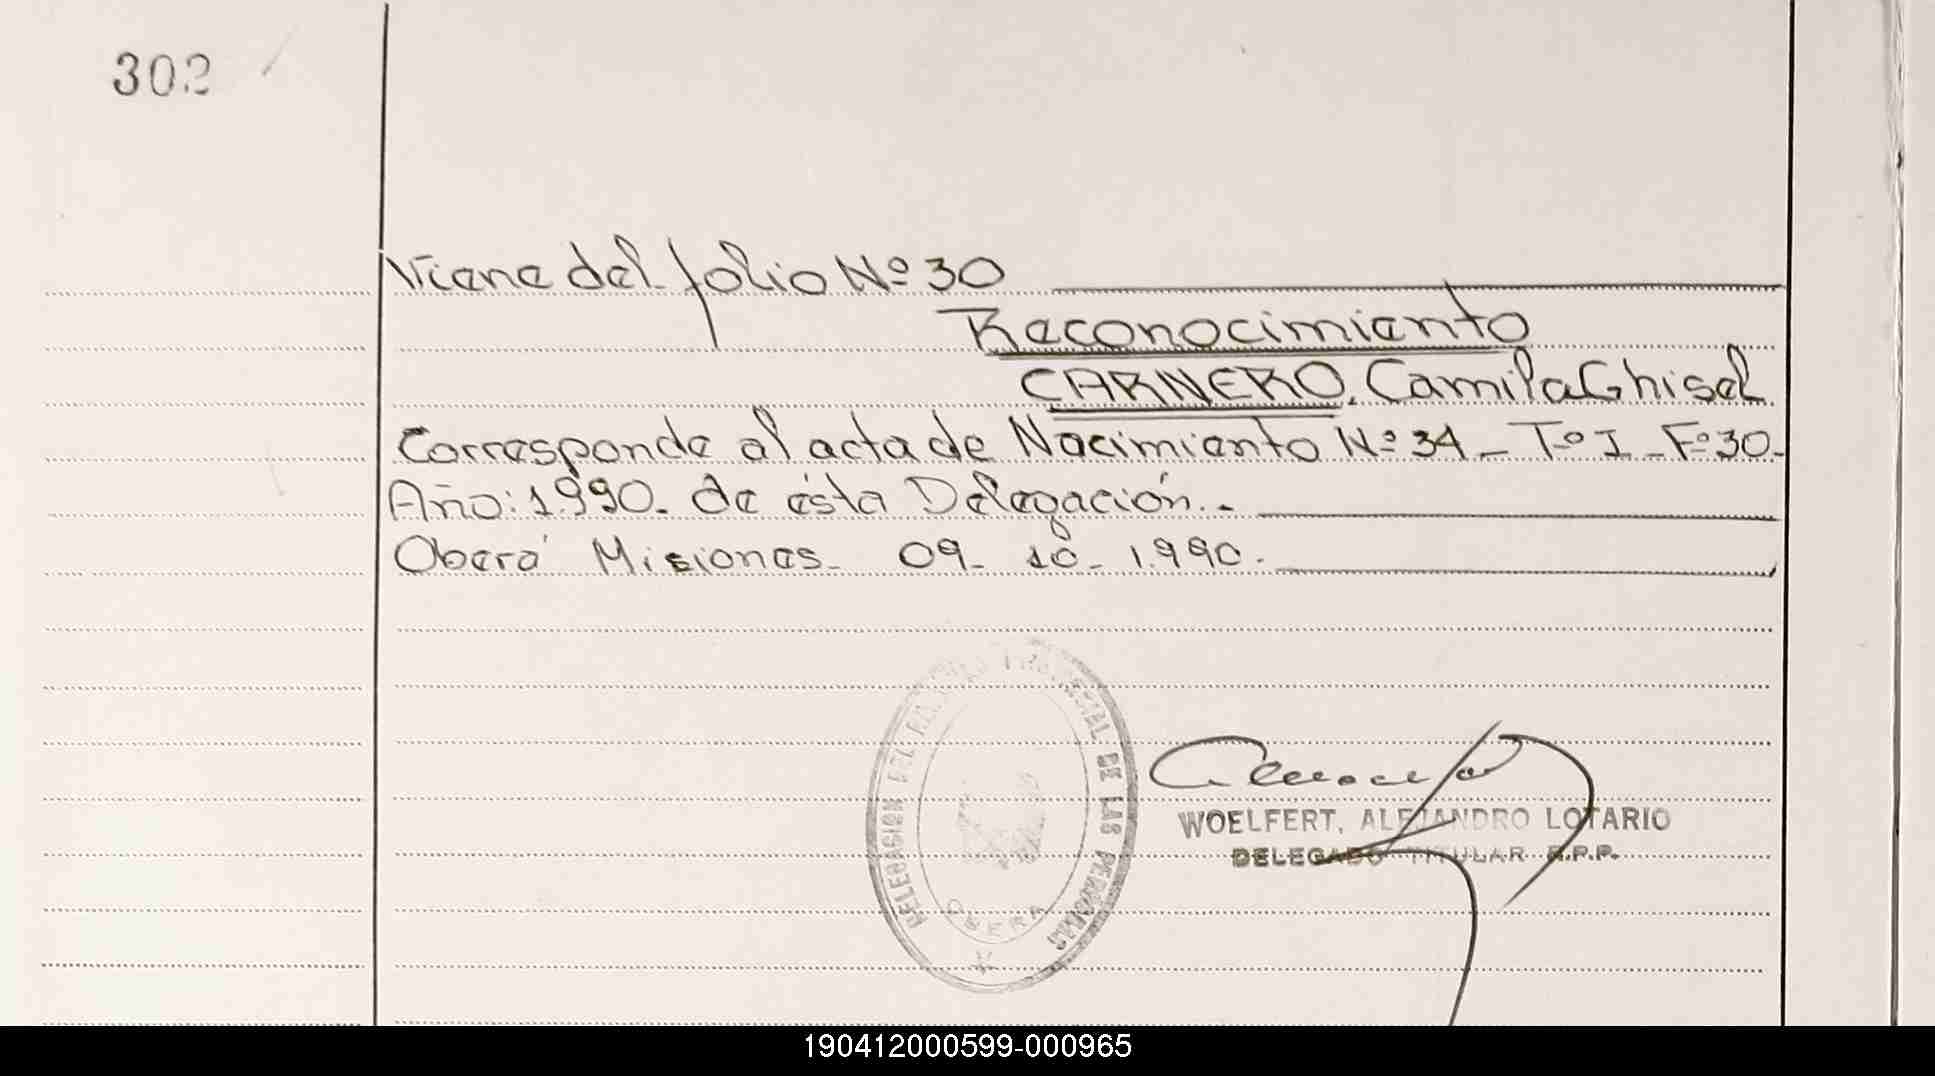 302
Viene del folio Nº 30
Reconocimiento
CARNERO, Camila Ghisel
Corresponde al acta de Nacimiento Nº 34 - Tº I - Fº 30 -
Año: 1.990. de ésta Delegación. -
Oberá Misiones - 09 - 10 - 1.990.
DELEGACION DEL REGISTRO PROVINCIAL DE LAS PERSONAS
OBERA
WOELFERT, ALEJANDRO LOTARIO
DELEGADO TITULAR R.P.P.
190412000599-000965